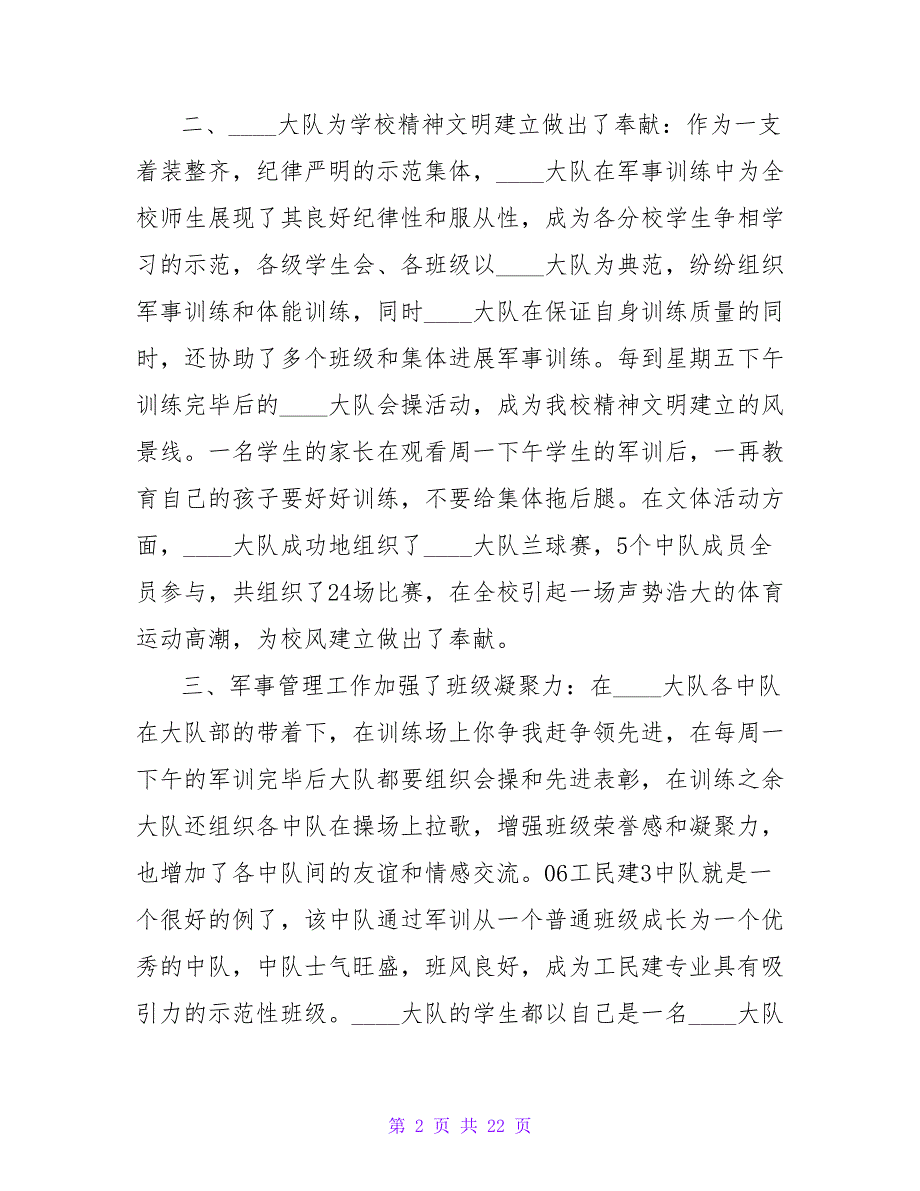 二、____大队为学校精神文明建立做出了奉献：作为一支
着装整齐，纪律严明的示范集体，____大队在军事训练中为全
校师生展现了其良好纪律性和服从性，成为各分校学生争相学
习的示范，各级学生会、各班级以____大队为典范，纷纷组织
军事训练和体能训练，同时____大队在保证自身训练质量的同
时，还协助了多个班级和集体进展军事训练。每到星期五下午
训练完毕后的____大队会操活动，成为我校精神文明建立的风
景线。一名学生的家长在观看周一下午学生的军训后，一再教
育自己的孩子要好好训练，不要给集体拖后腿。在文体活动方
面，____大队成功地组织了____大队兰球赛，5个中队成员全
员参与，共组织了24场比赛，在全校引起一场声势浩大的体育
运动高潮，为校风建立做出了奉献。
三、军事管理工作加强了班级凝聚力：在____大队各中队
在大队部的带着下，在训练场上你争我赶争领先进，在每周一
下午的军训完毕后大队都要组织会操和先进表彰，在训练之余
大队还组织各中队在操场上拉歌，增强班级荣誉感和凝聚力，
也增加了各中队间的友谊和情感交流。06工民建3中队就是一
个很好的例了，该中队通过军训从一个普通班级成长为一个优
秀的中队，中队士气旺盛，班风良好，成为工民建专业具有吸
引力的示范性班级。____大队的学生都以自己是一名____大队
第 2 页 共 22 页